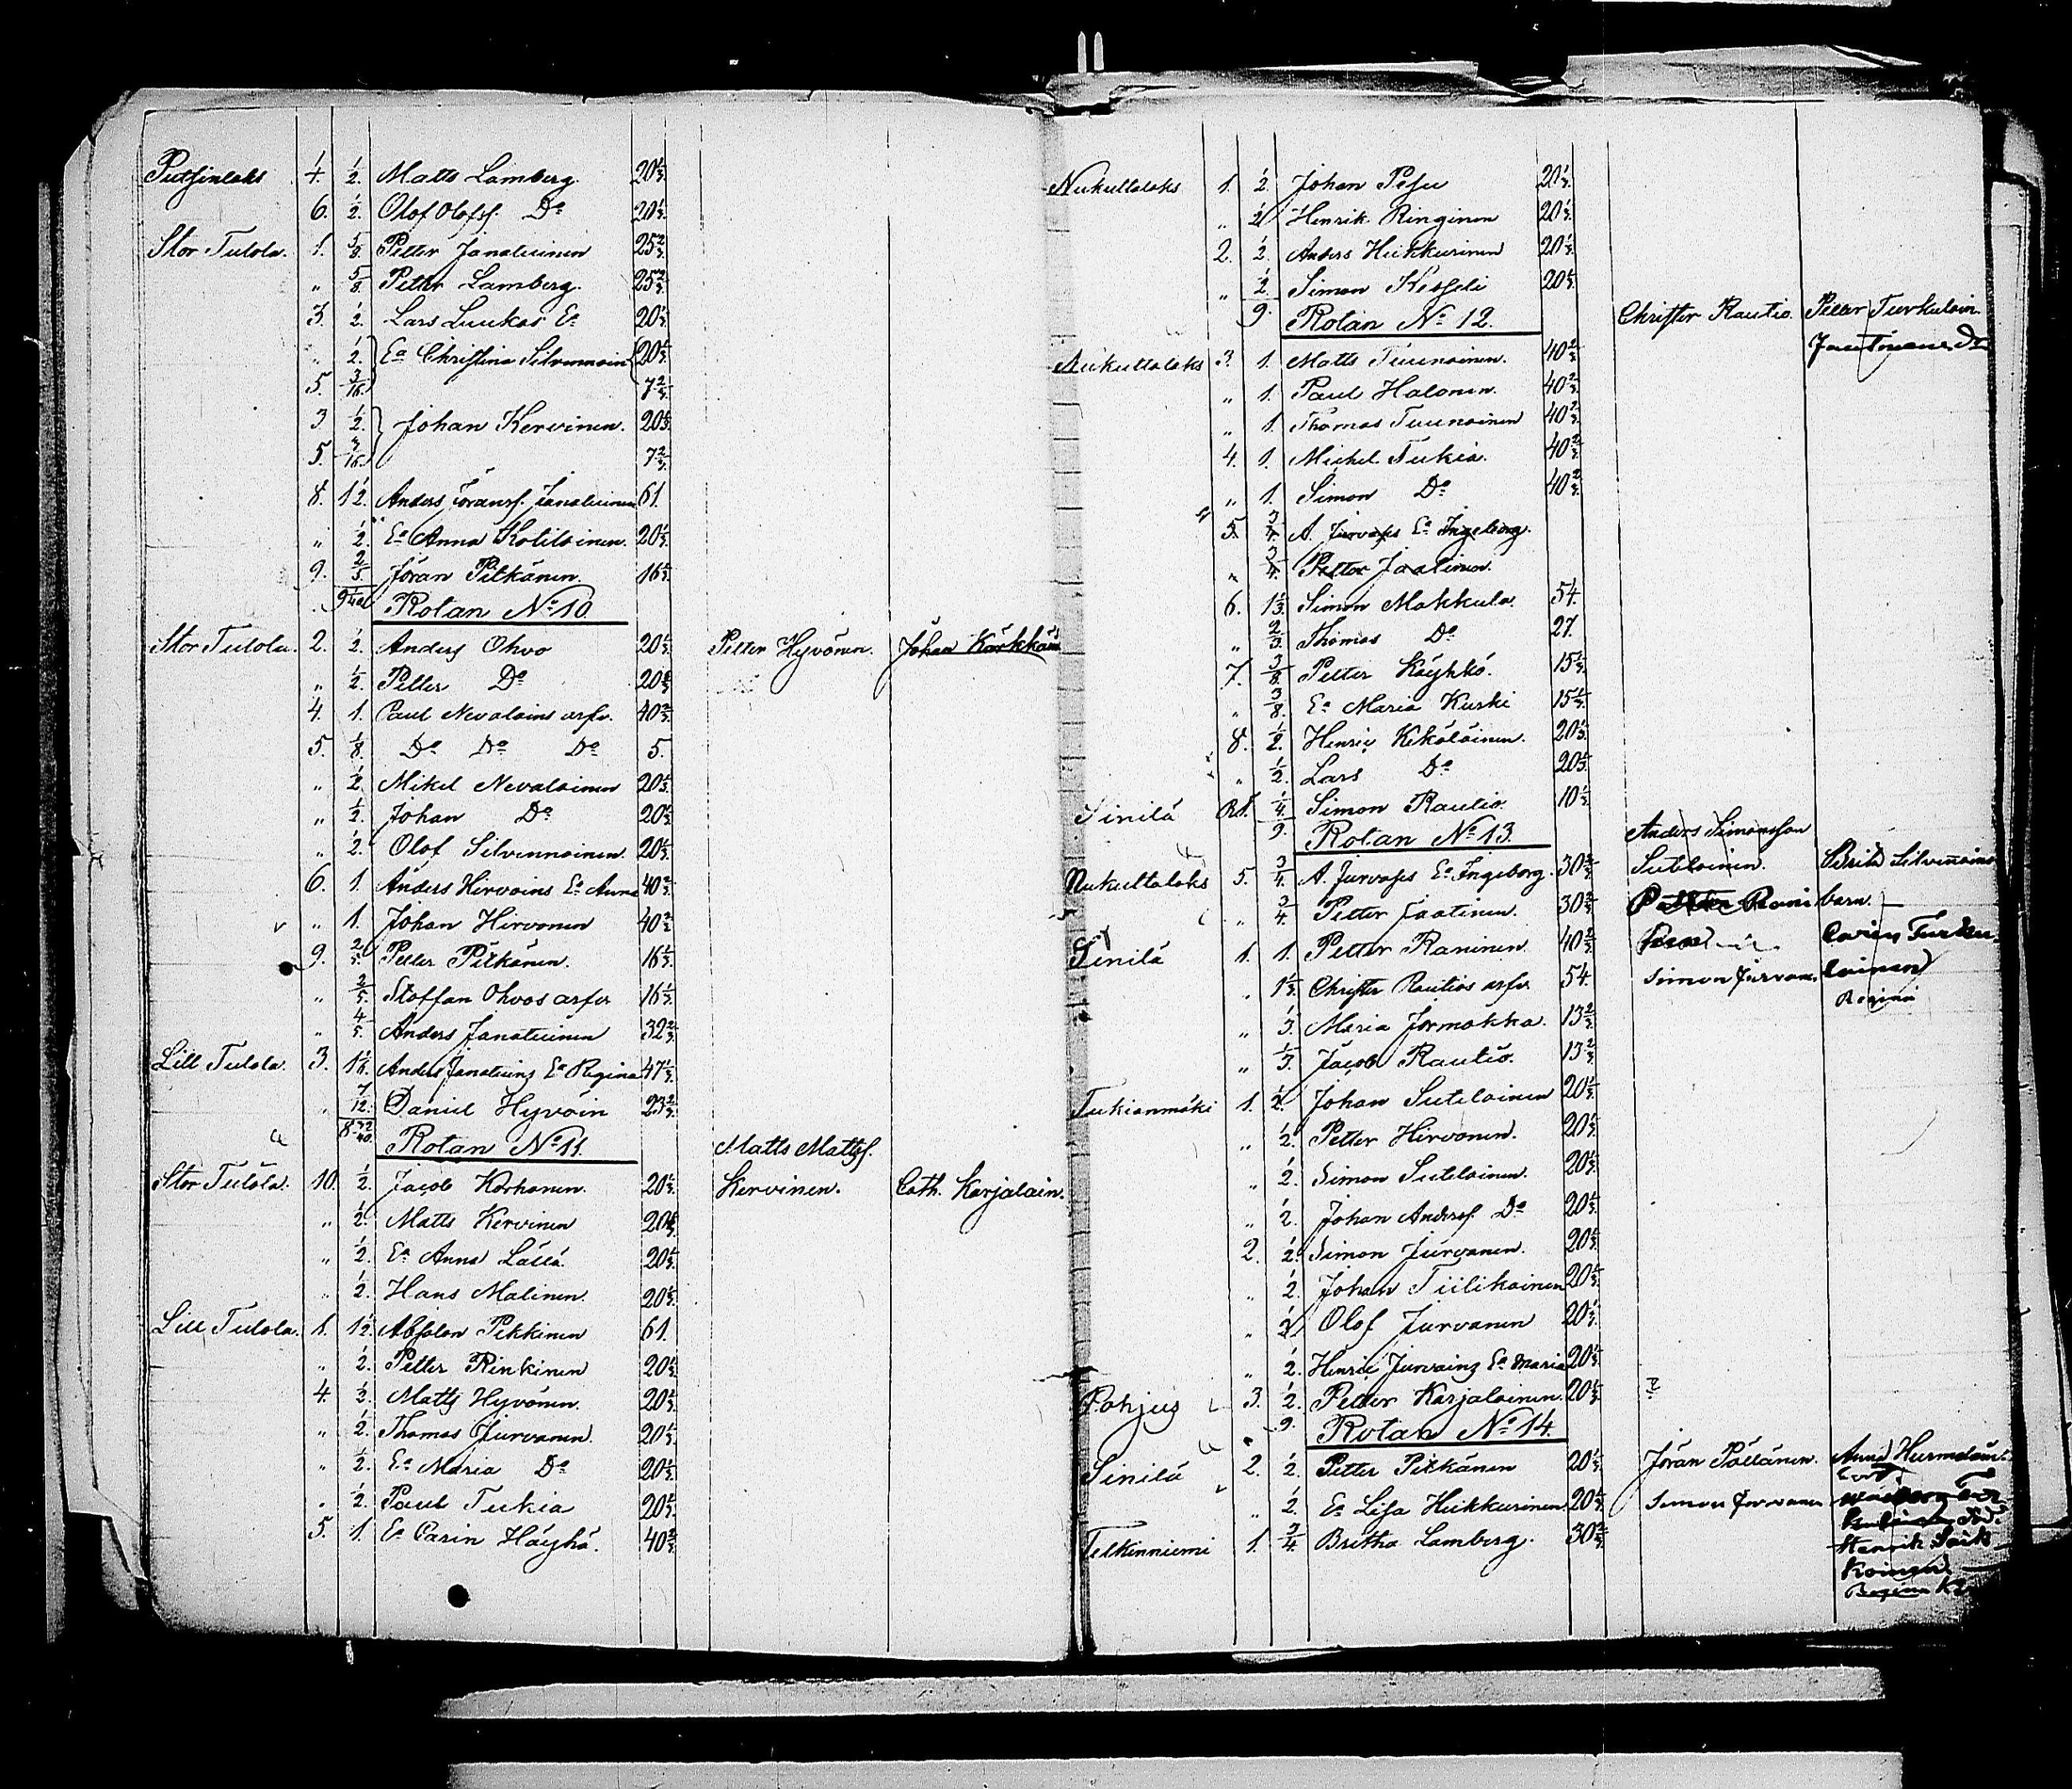 Putsinlaks 4. 1/2. Matts Lamberg 20 1/3.
6. 1/2. Olof Olofss. Do 20 1/3.
Stor Tulola. 1. 5/8. Petter Janatuinen 25 2/3.
" 5/8 Petter Lamberg. 25 2/3.
3. 1/2. Lars Luukas Ea 20 1/3.
" 1/2. Ea Christina Silvennoin 20 1/3.
5. 3/16. 7 2/3.
3 1/2. Johan Kervinen. 20 1/3.
5. 3/16. 7 2/3.
8. 1 1/2. Anders Joranss. Janatuinen 61.
" 1/2. Ea Anna Koliloinen. 20 1/3.
9. 2/5. Jöran Pitkänen. 16 1/3.
Rotan No 10.
Stor Tulola. 2. 1/2. Anders Ohvo 20 1/3. Petter Hyvönen. Johan Kärkkäin
" 1/2. Petter Do 20 1/3.
4. 1. Paul Nevalains arfv. 40 2/3.
5. 1/8. Do Do Do 5.
" 1/2. Mikel Nevalainen 20 1/3.
" 1/2. Johan Do 20 1/3.
" 1/2. Olof Silvennoinen. 20 1/3.
6. 1. Anders Hirvoins Ea Anna 40 2/3.
" 1. Johan Hirvonen 40 2/3.
9. 2/5. Petter Pitkänen. 16 1/3.
" 2/5. Staffan Ohvos arfvr 16 1/3.
" 4/5. Anders Janatuinen 32 2/3.
Lill Tulola. 3. 1 1/6. Anders Janatuins Ea Regina 47 1/3.
" 7/12. Daniel Hyvöin 23 2/3.
8 32/40. Rotan No 11. Matts Mattss.
Stor Tulola. 10. 1/2. Jacob Korhonen. 20 1/3. Kervinen. Cath. Karjalain.
" 1/2. Matts Kervinen 20 1/3.
" 1/2. Ea Anna Lällä. 20 1/3.
" 1/2. Hans Malinen. 20 1/3.
Lill Tulola. 1. 1 1/2. Absolon Pekkinen 61.
" 1/2. Petter Rinkinen 20 1/3.
4. 1/2. Matts Hyvönen. 20 1/3.
" 1/2. Thomas Jurvanen. 20 1/3.
" 1/2. Ea Maria Do 20 1/3.
" 1/2. Paul Tukia 20 1/3.
5. 1. Ea Carin Häyhä. 40 2/3.
Nukuttalaks 1. 1/2. Johan Pesu 20 1/3.
" 1/2 Henrik Ringinen 20 1/3.
2. 1/2. Anders Hukkurinen 20 1/3.
" 1/2. Simon Kesseli 20 1/3.
9. Rotan No 12. Christer Rautio. Petter Turkulain.
Nukuttalaks 3. 1. Matts Tuunainen. 40 2/3.
" 1. Paul Halonen. 40 2/3.
" 1. Thomas Tuunainen 40 2/3.
4. 1. Michel Tukia. 40 2/3.
" 1. Simon Do 40 2/3.
5. 3/4. A. Jurvass Ea Ingeborg.
" 3/4. Petter Jaatinen.
6. 1 1/3. Simon Makkula. 54.
" 2/3. Thomas Do 27.
7. 3/8. Petter Käyhkö. 15 1/3.
" 3/8. Ea Maria Kuski 15 1/3.
8. 1/2. Henric Kekäläinen. 20 1/3.
" 1/2. Lars Do 20 1/3.
Sinilä Rd. 1/4. Simon Rautio. 10 1/3.
9. Rotan No 13. Anders Simonsson
Nukuttalaks 5. 3/4. A. Jurvass Ea Ingeborg. 30 2/3. Sutelainen. Silvennoins
" 3/4 Petter Jaatinen. 30 2/3. barn.
Sinilä 1. 1. Petter Raninen 40 2/3.
" 1 1/3. Christer Rautios arfv. 54. Simon Jurvan. lainen
Regina
" 1/3. Maria Jormakka. 13 2/3.
" 1/3. Jacob Rautio. 13 2/3.
Tukianmäki 1. 1/2. Johan Sutelainen 20 1/3.
" 1/2. Petter Hirvonen. 20 1/3.
" 1/2. Simon Sutelainen. 20 1/3.
" 1/2. Johan Anderss. Do 20 1/3.
2. 1/2. Simon Jurvanen. 20 1/3.
" 1/2. Johan Tiilikainen 20 1/3.
" 1/2 Olof Jurvanen 20 1/3.
" 1/2. Henric Jurvains Ea Maria 20 1/3.
Pohjus 3. 1/2. Petter Karjalainen. 20 1/3.
9. Rotan No 14.
Sinilä 2. 1/2. Petter Pitkänen 20 1/3. Jöran Pöllänen. Anna
" 1/2. Ea Lisa Hukkurinen 20 1/3. Simon Jurvanen
Telkinniemi 1. 3/4. Britha Lamberg. 30 2/3.
Henrik